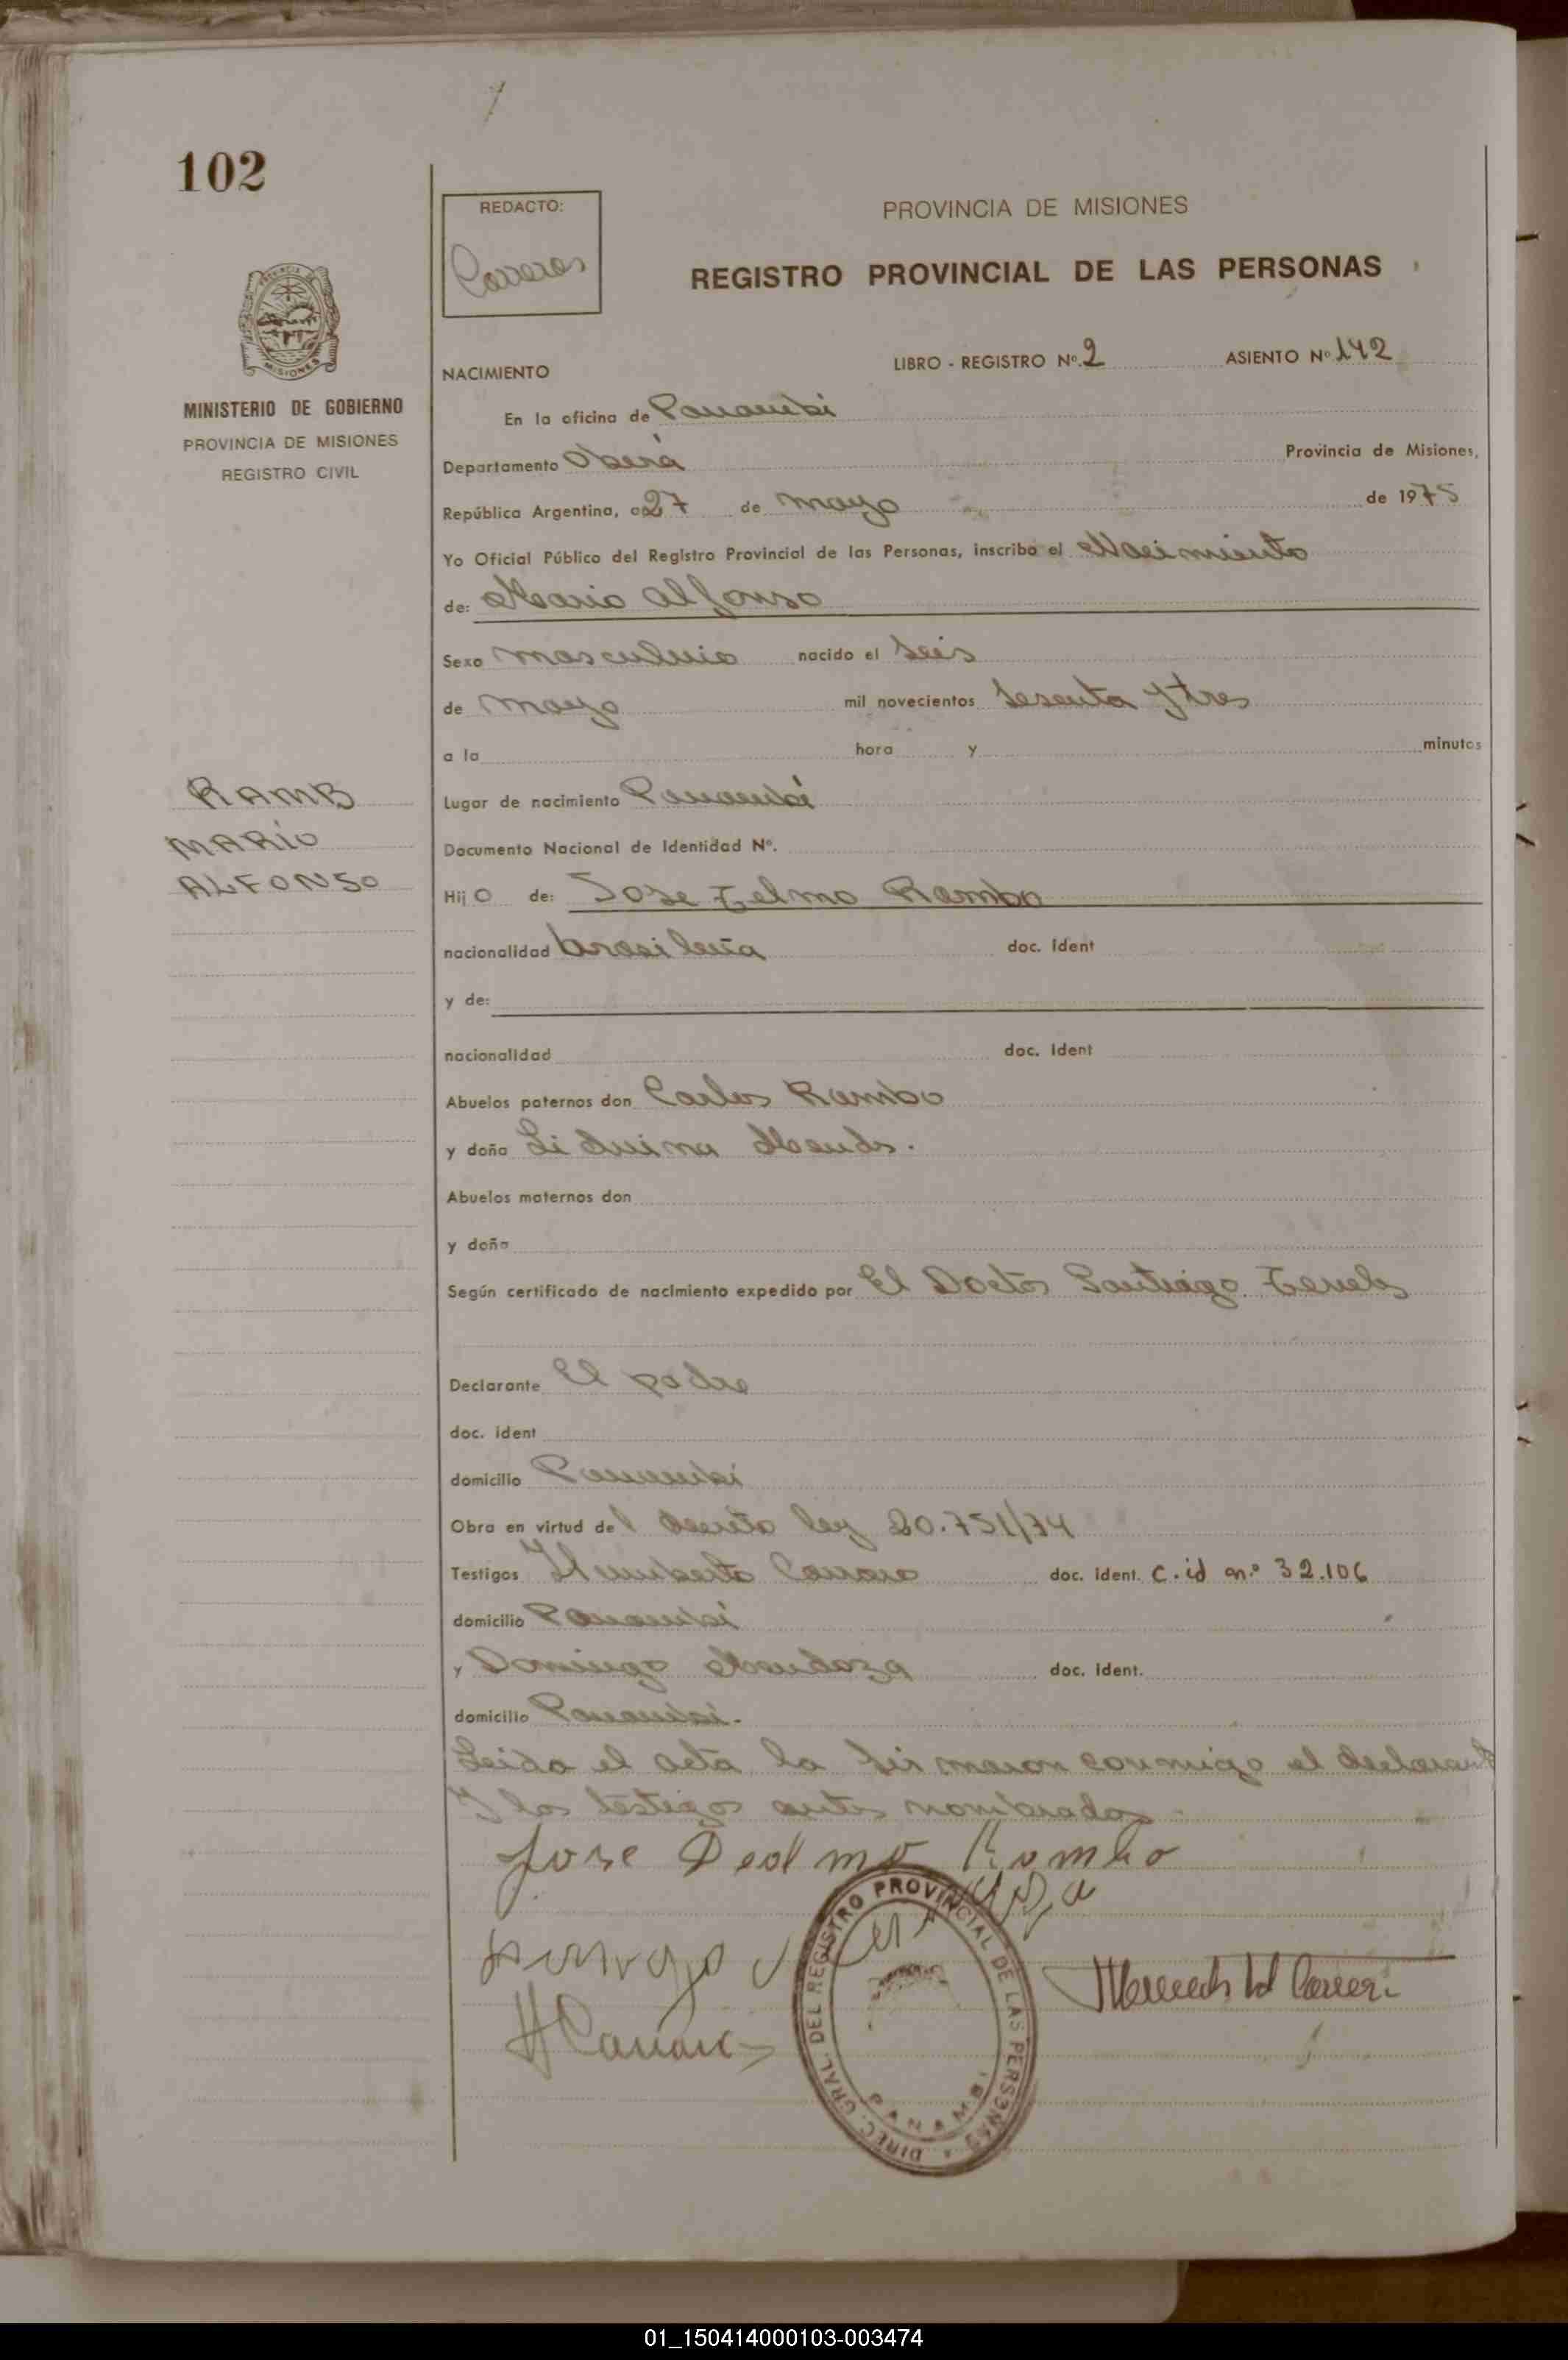 102
REDACTO:
Carreras
PROVINCIA DE MISIONES
REGISTRO PROVINCIAL DE LAS PERSONAS
MISIONES
MINISTERIO DE GOBIERNO
PROVINCIA DE MISIONES
REGISTRO CIVIL
NACIMIENTO LIBRO - REGISTRO Nº. 2 ASIENTO Nº 142
En la oficina de Panambi
Departamento Oberá Provincia de Misiones,
República Argentina, a 27 de mayo de 1975
Yo Oficial Público del Registro Provincial de las Personas, inscribo el Nacimiento
de: Mario Alfonso
Sexo masculino nacido el seis
de mayo mil novecientos sesenta y tres
a la hora y minutos
RAMB
MARIO
ALFONSO
Lugar de nacimiento Panambi
Documento Nacional de Identidad Nº.
Hijo de: Jose Telmo Rambo
nacionalidad brasileña doc. ident
y de:
nacionalidad doc. ident
Abuelos paternos don Carlos Rambo
y doña Liduina
Abuelos maternos don
y doña
Según certificado de nacimiento expedido por El Doctor Santiago
Declarante El padre
doc. ident
domicilio Panambi
Obra en virtud del decreto ley 20.751/74
Testigos Humberto doc. ident. c.id n.º 32.106
domicilio Panambi
y Domingo Mendoza doc. ident.
domicilio Panambi.
Leida el acta la firmaron conmigo el declarant
y los testigos antes nombrados.
Jose Dealmo Rambo
DIREC. GRAL. DEL REGISTRO PROVINCIAL DE LAS PERSONAS
PANAMBI
01_150414000103-003474